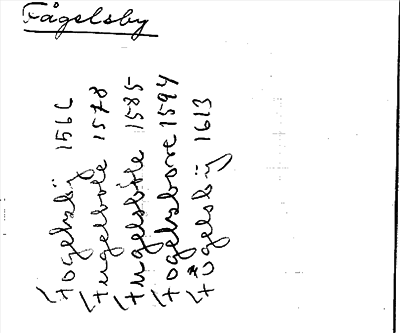 Fågelsby
Fogelsbÿ 1566
Fugelbole 1578
Fugelsböle 1585
Fogelsbore 1594
Fögelsbÿ 1613